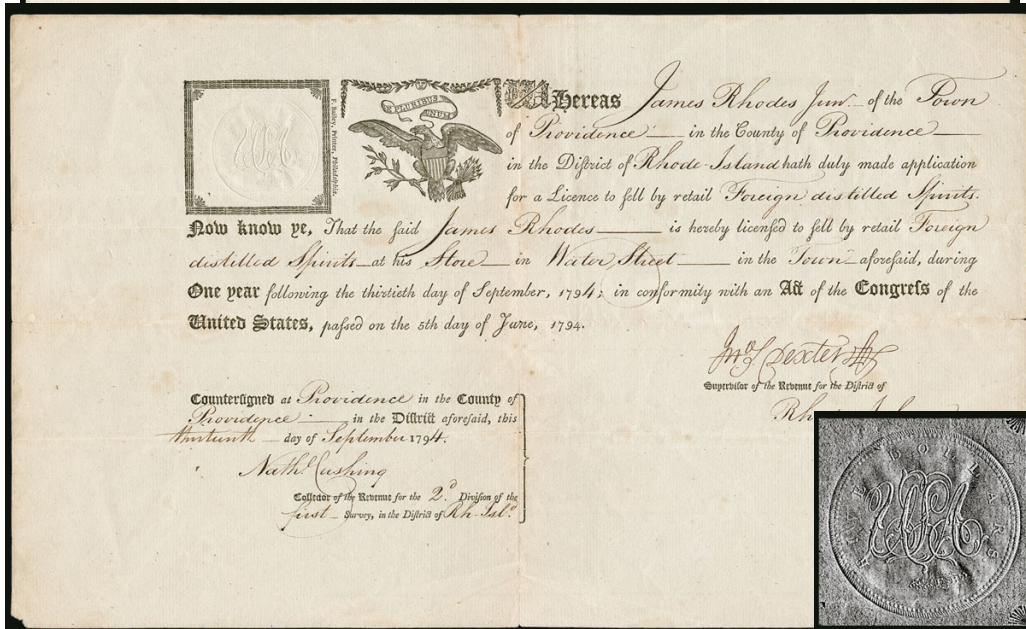 F. Bailey, Printer, Philadelphia.
E PLURIBUS
UNUM
Whereas James Rhodes Junr. of the Town
of Providence in the County of Providence
in the District of Rhode-Island hath duly made application
for a Licence to sell by retail Foreign distilled Spirits.
Now know ye, That the said James Rhodes is hereby licensed to sell by retail Foreign
distilled Spirits at his Store in Water Street in the Town aforesaid, during
One year following the thirtieth day of September, 1794; in conformity with an Act of the Congress of the
United States, passed on the 5th day of June, 1794.
Jno. S. Dexter
Supervisor of the Revenue for the District of
Countersigned at Providence in the County of
Providence in the District aforesaid, this
thirteenth day of September 1794.
Nathl. Cushing
Collector of the Revenue for the 2d. Division of the
first Survey, in the District of Rh. Isld.
FIVE DOLLARS